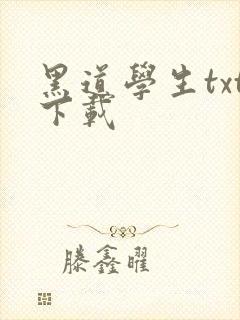 黑道學生txt
下載
滕鑫曜